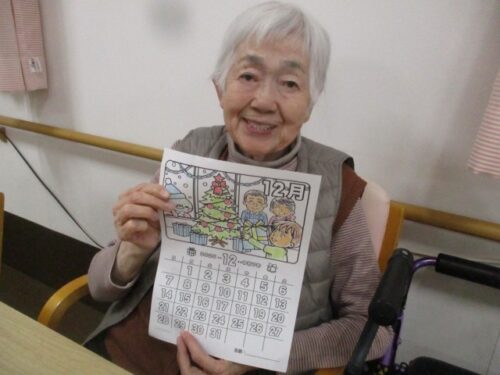 12月
12
1 2 3 4 5 6
7 8 9 10 11 12 13
14 15 16 17 18 19 20
21 22 23 24 25 26 27
28 29 30 31